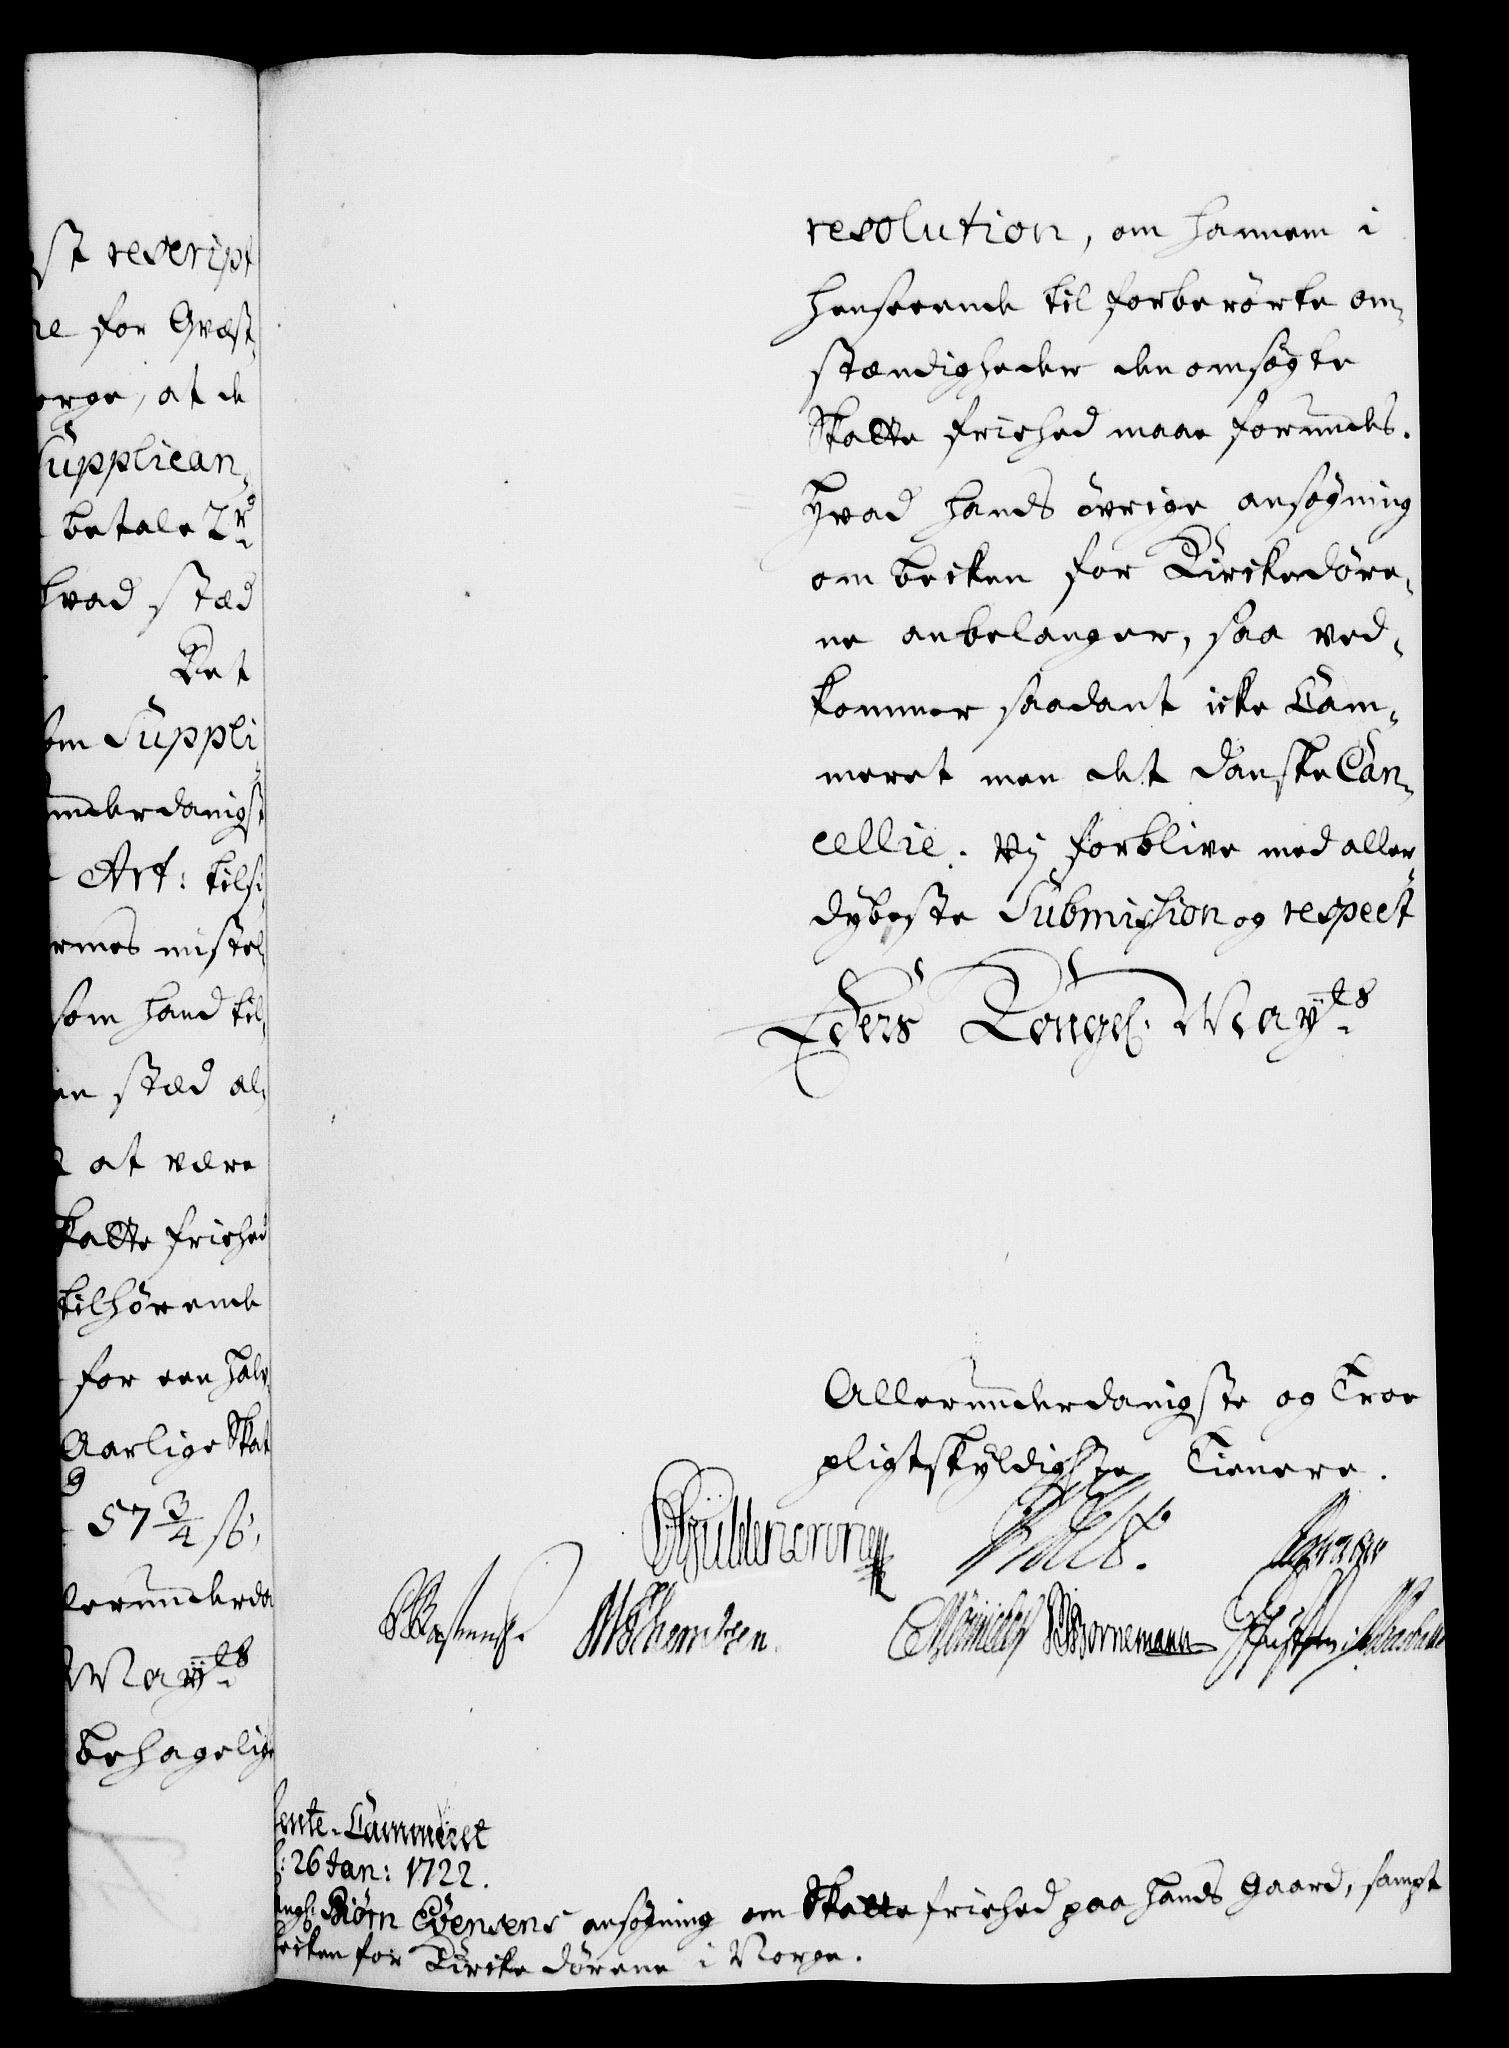 st rescript
for Gvæst¬
orge, at de
Supplican¬
betale 2 rd
hvad stæd
Det
om Suppli
underdanigst
Art: tilsi¬
som hand til¬
stæd al¬
at være
skatte frihed
tilhörende
for een halv
Aarlige Skat
57 3/4 sk,
lerunderda
Mayts
behagelige
resolution, om hannem i
henseende til forberörte om¬
stændigheder den omsögte
Skatte friehed maae forundes.
Hvad hands övrige ansögning
om becken for Kirckedöre¬
ne anbelanger, saa ved¬
kommer saadant icke Cam¬
meret men det danske Can¬
cellie. Vij forblive med aller
dybeste Submission og respect
Eders Kongel. Mayts
Allerunderdanigste og Troe
pligtskyldigste Tienere.
Güldencrone
Bornemann
ente-Cammeret
: 26 Jan: 1722.
angl: Biörn Evensens ansögning om Skatte friehed paa hands Gaard, sampt
becken for Kircke dörene i Norge.